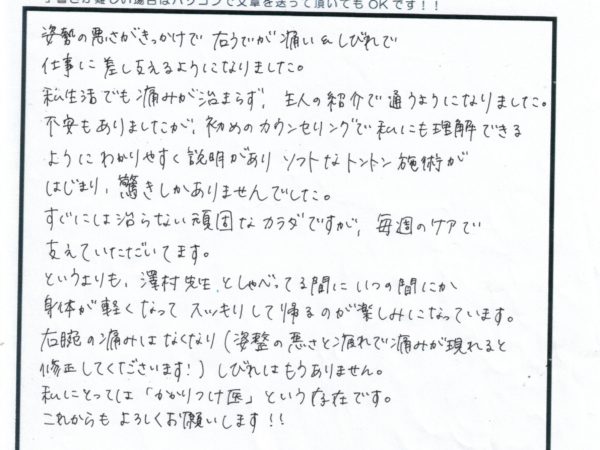 手書きが難しい場合はパソコンで文章を送って頂いてもOKです！！
姿勢の悪さがきっかけで 右うでが痛い＆しびれで
仕事に差し支えるようになりました。
私生活でも痛みが治まらず、主人の紹介で通うようになりました。
不安もありましたが、初めのカウンセリングで私にも理解できる
ようにわかりやすく説明があり ソフトなトントン施術が
はじまり、驚きしかありませんでした。
すぐには治らない頑固なカラダですが、毎週のケアで
支えていただいてます。
というよりも、澤村先生としゃべってる間にいつの間にか
身体が軽くなって スッキリして帰るのが楽しみになっています。
右腕の痛みはなくなり（姿整の悪さと疲れで痛みが現れると
修正してくださいます！）しびれはもうありません。
私にとっては「かかりつけ医」という存在です。
これからもよろしくお願いします！！